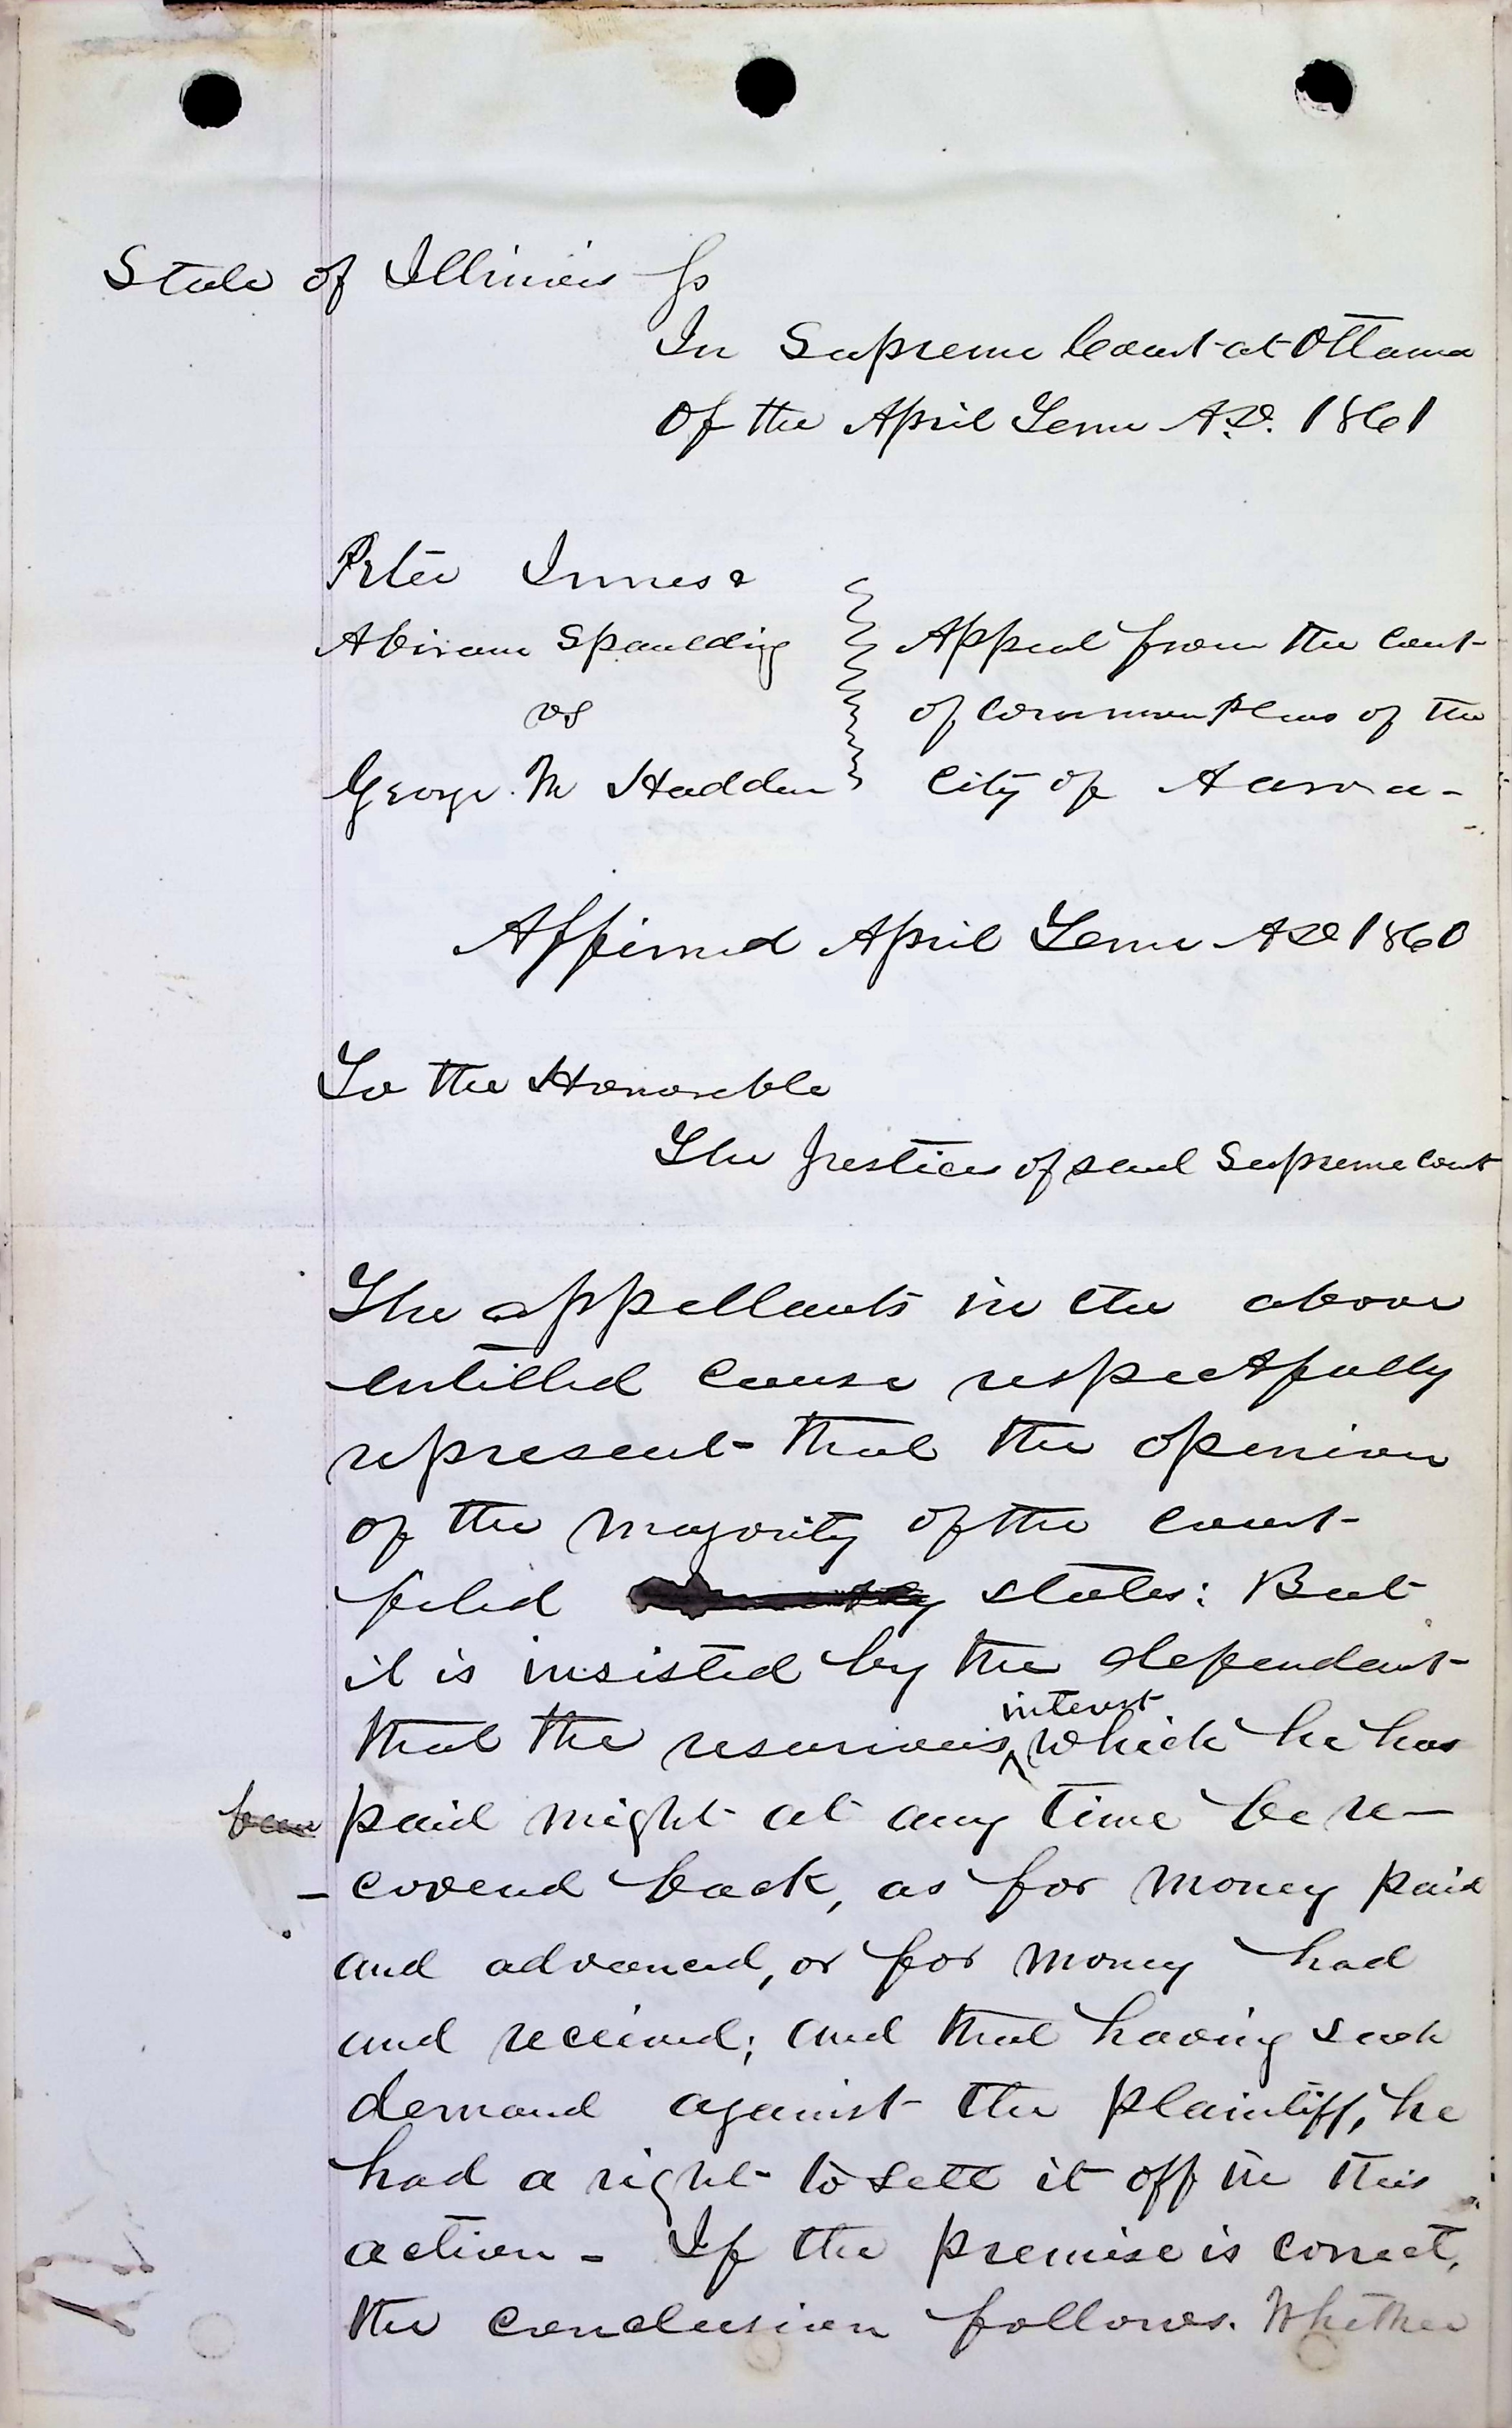 State of Illinois Ss
In Supreme Court at Ottawa
Of the April Term A.D. 1861
Peter Innes &
Abiram Spaulding
vs
George. M Hadden
Appeal from the Court
of Common Pleas of the
City of Aurora -
Affirmed April Term AD 1860
To the Honorable
The Justices of said Supreme Court
The appellants in the above
entitled cause respectfully
represent that the openion
of the majority of the court
filed states: But
it is insisted by the defendant
that the usurious interest which he has
been paid might at any time be re-
-covered back, as for money paid
and advanced, or for money had
and received; and that having such
demand against the plaintiff, he
had a right to sett it off in this
action - If the premise is correct,
the conclusion follows. Whether